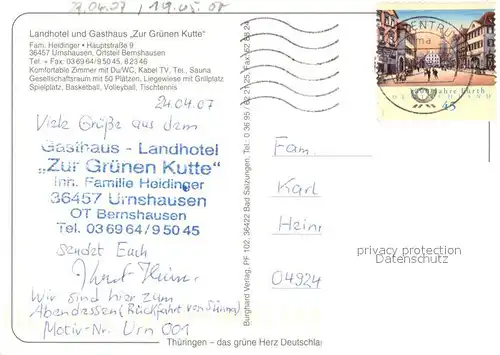 29.04.07 / 19.05.07
Landhotel und Gasthaus „Zur Grünen Kutte“
Fam. Heidinger • Hauptstraße 9
36457 Urnshausen, Ortsteil Bernshausen
Tel. + Fax 03 69 64/9 50 45, 8 23 46
Komfortable Zimmer mit Du/WC, Kabel TV, Tel., Sauna
Gesellschaftsraum mit 50 Plätzen, Liegewiese mit Grillplatz
Spielplatz, Basketball, Volleyball, Tischtennis
24.04.07
Viele Grüße aus dem
Gasthaus - Landhotel
„Zur Grünen Kutte“
Inh. Familie Heidinger
36457 Urnshausen
OT Bernshausen
Tel. 03 69 64/9 50 45
sendet Euch
Wir sind hier zum
Abendessen (Rückfahrt von Sünna)
Motiv-Nr. Urn 001
Thüringen – das grüne Herz Deutschla
Burghard Verlag, PF 102, 36422 Bad Salzungen, Tel. 0 36 95 / 62 21 25, Fax 62 88 24
ZENTRUM
1000 Jahre Fürth
DEUTSCHLAND
45
Fam.
Karl
Hein
04924
privacy protection
Datenschutz